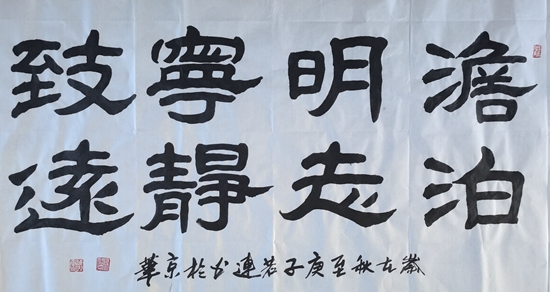 澹泊
明志
寧靜
致遠
歲在秋至庚子若連书於京華